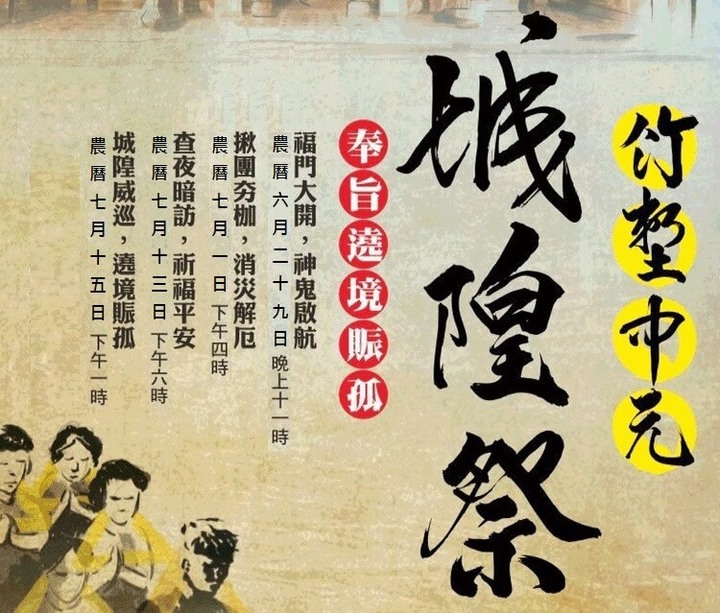 竹塹中元
城隍祭
奉旨遶境賑孤
福門大開，神鬼啟航
農曆六月二十九日晚上十一時
揪團夯枷，消災解厄
農曆七月一日下午四時
查夜暗訪，祈福平安
農曆七月十三日下午六時
城隍威巡，遶境賑孤
農曆七月十五日下午一時